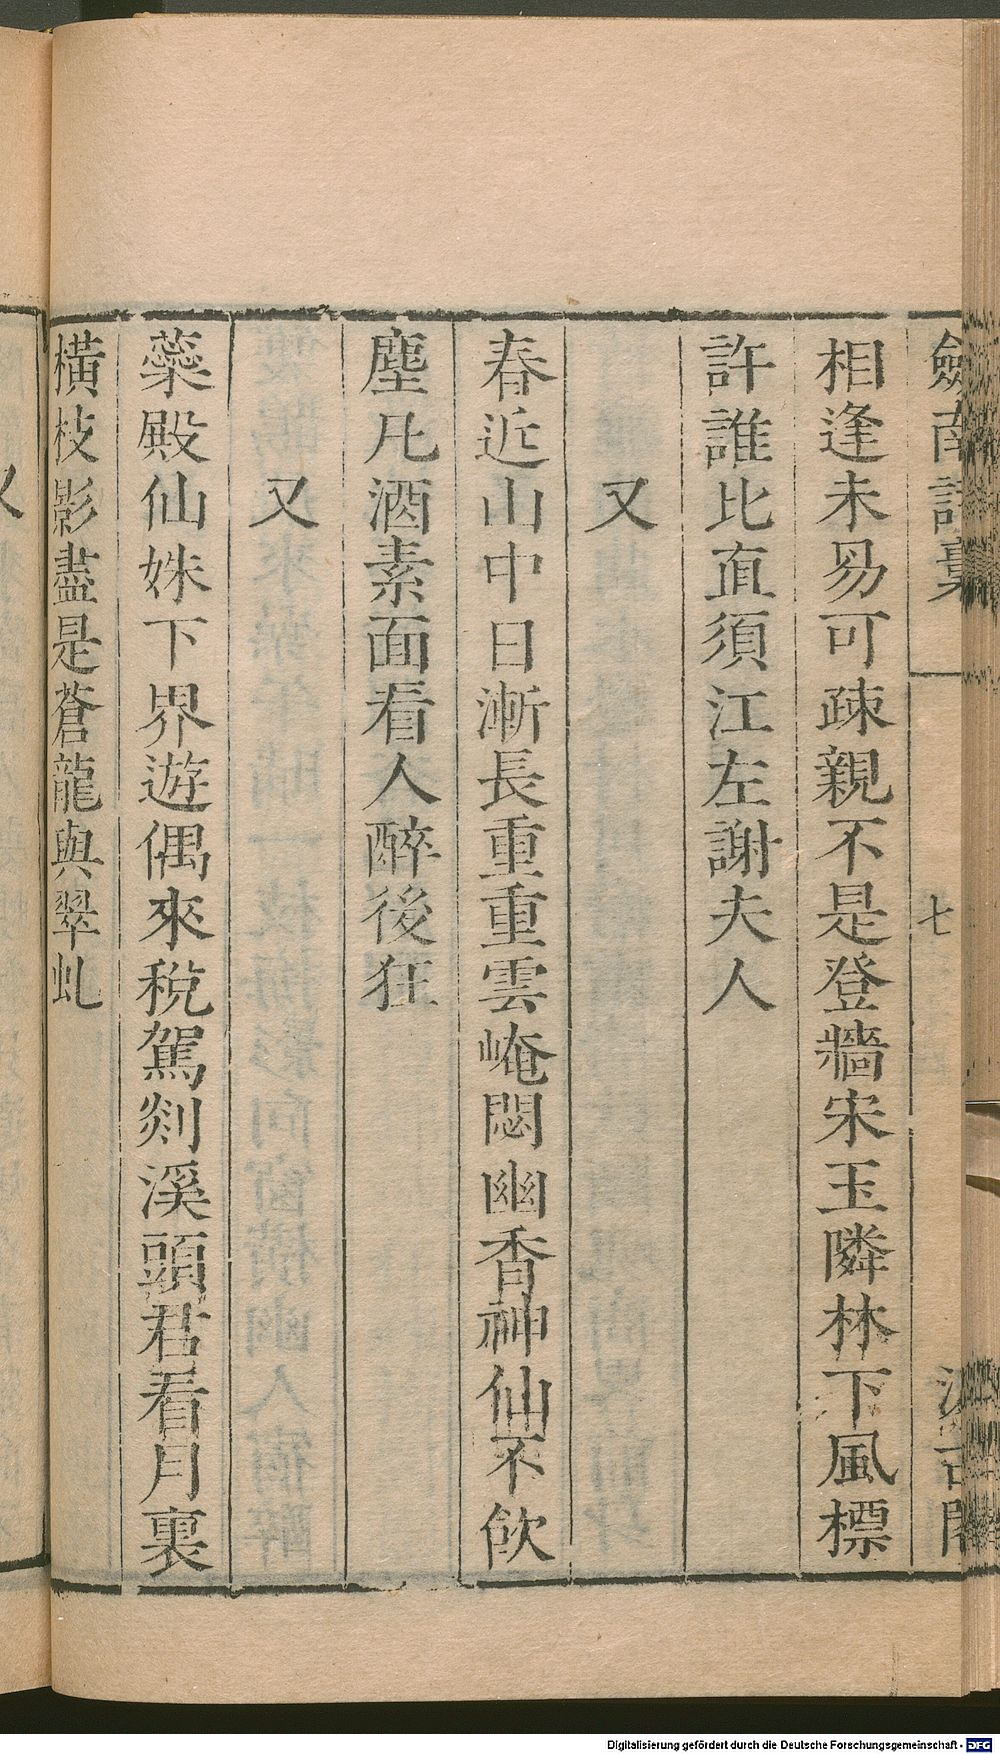 劍南詩稾
七
相逢未易可疎親不是登牆宋玉隣林下風標
許誰比直須江左謝夫人
又
春近山中日漸長重重雲崦悶幽香神仙不飲
塵凡酒素面看人醉後狂
又
蘂殿仙姝下界遊偶來稅駕剡溪頭君看月裏
橫枝影盡是蒼龍與翠虬
又
Digitalisierung gefördert durch die Deutsche Forschungsgemeinschaft - DFG